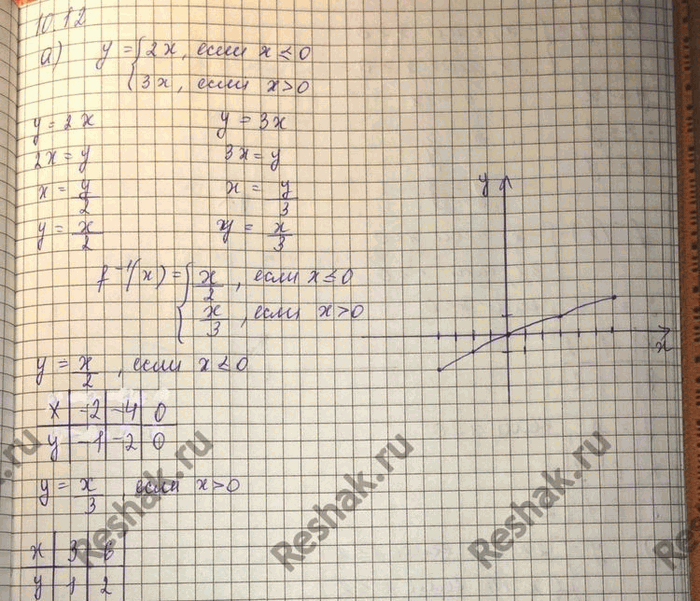 10.12
а) y = { 2x, если x ≤ 0
3x, если x > 0
y = 2x y = 3x
2x = y 3x = y
x = y/2 x = y/3
y = x/2 y = x/3
f⁻¹(x) = { x/2, если x ≤ 0
x/3, если x > 0
y = x/2, если x ≤ 0
x -2 -4 0
y -1 -2 0
y = x/3 если x > 0
x 3 6
y 1 2
y
x
Reshak.ru
Reshak.ru
Reshak.ru